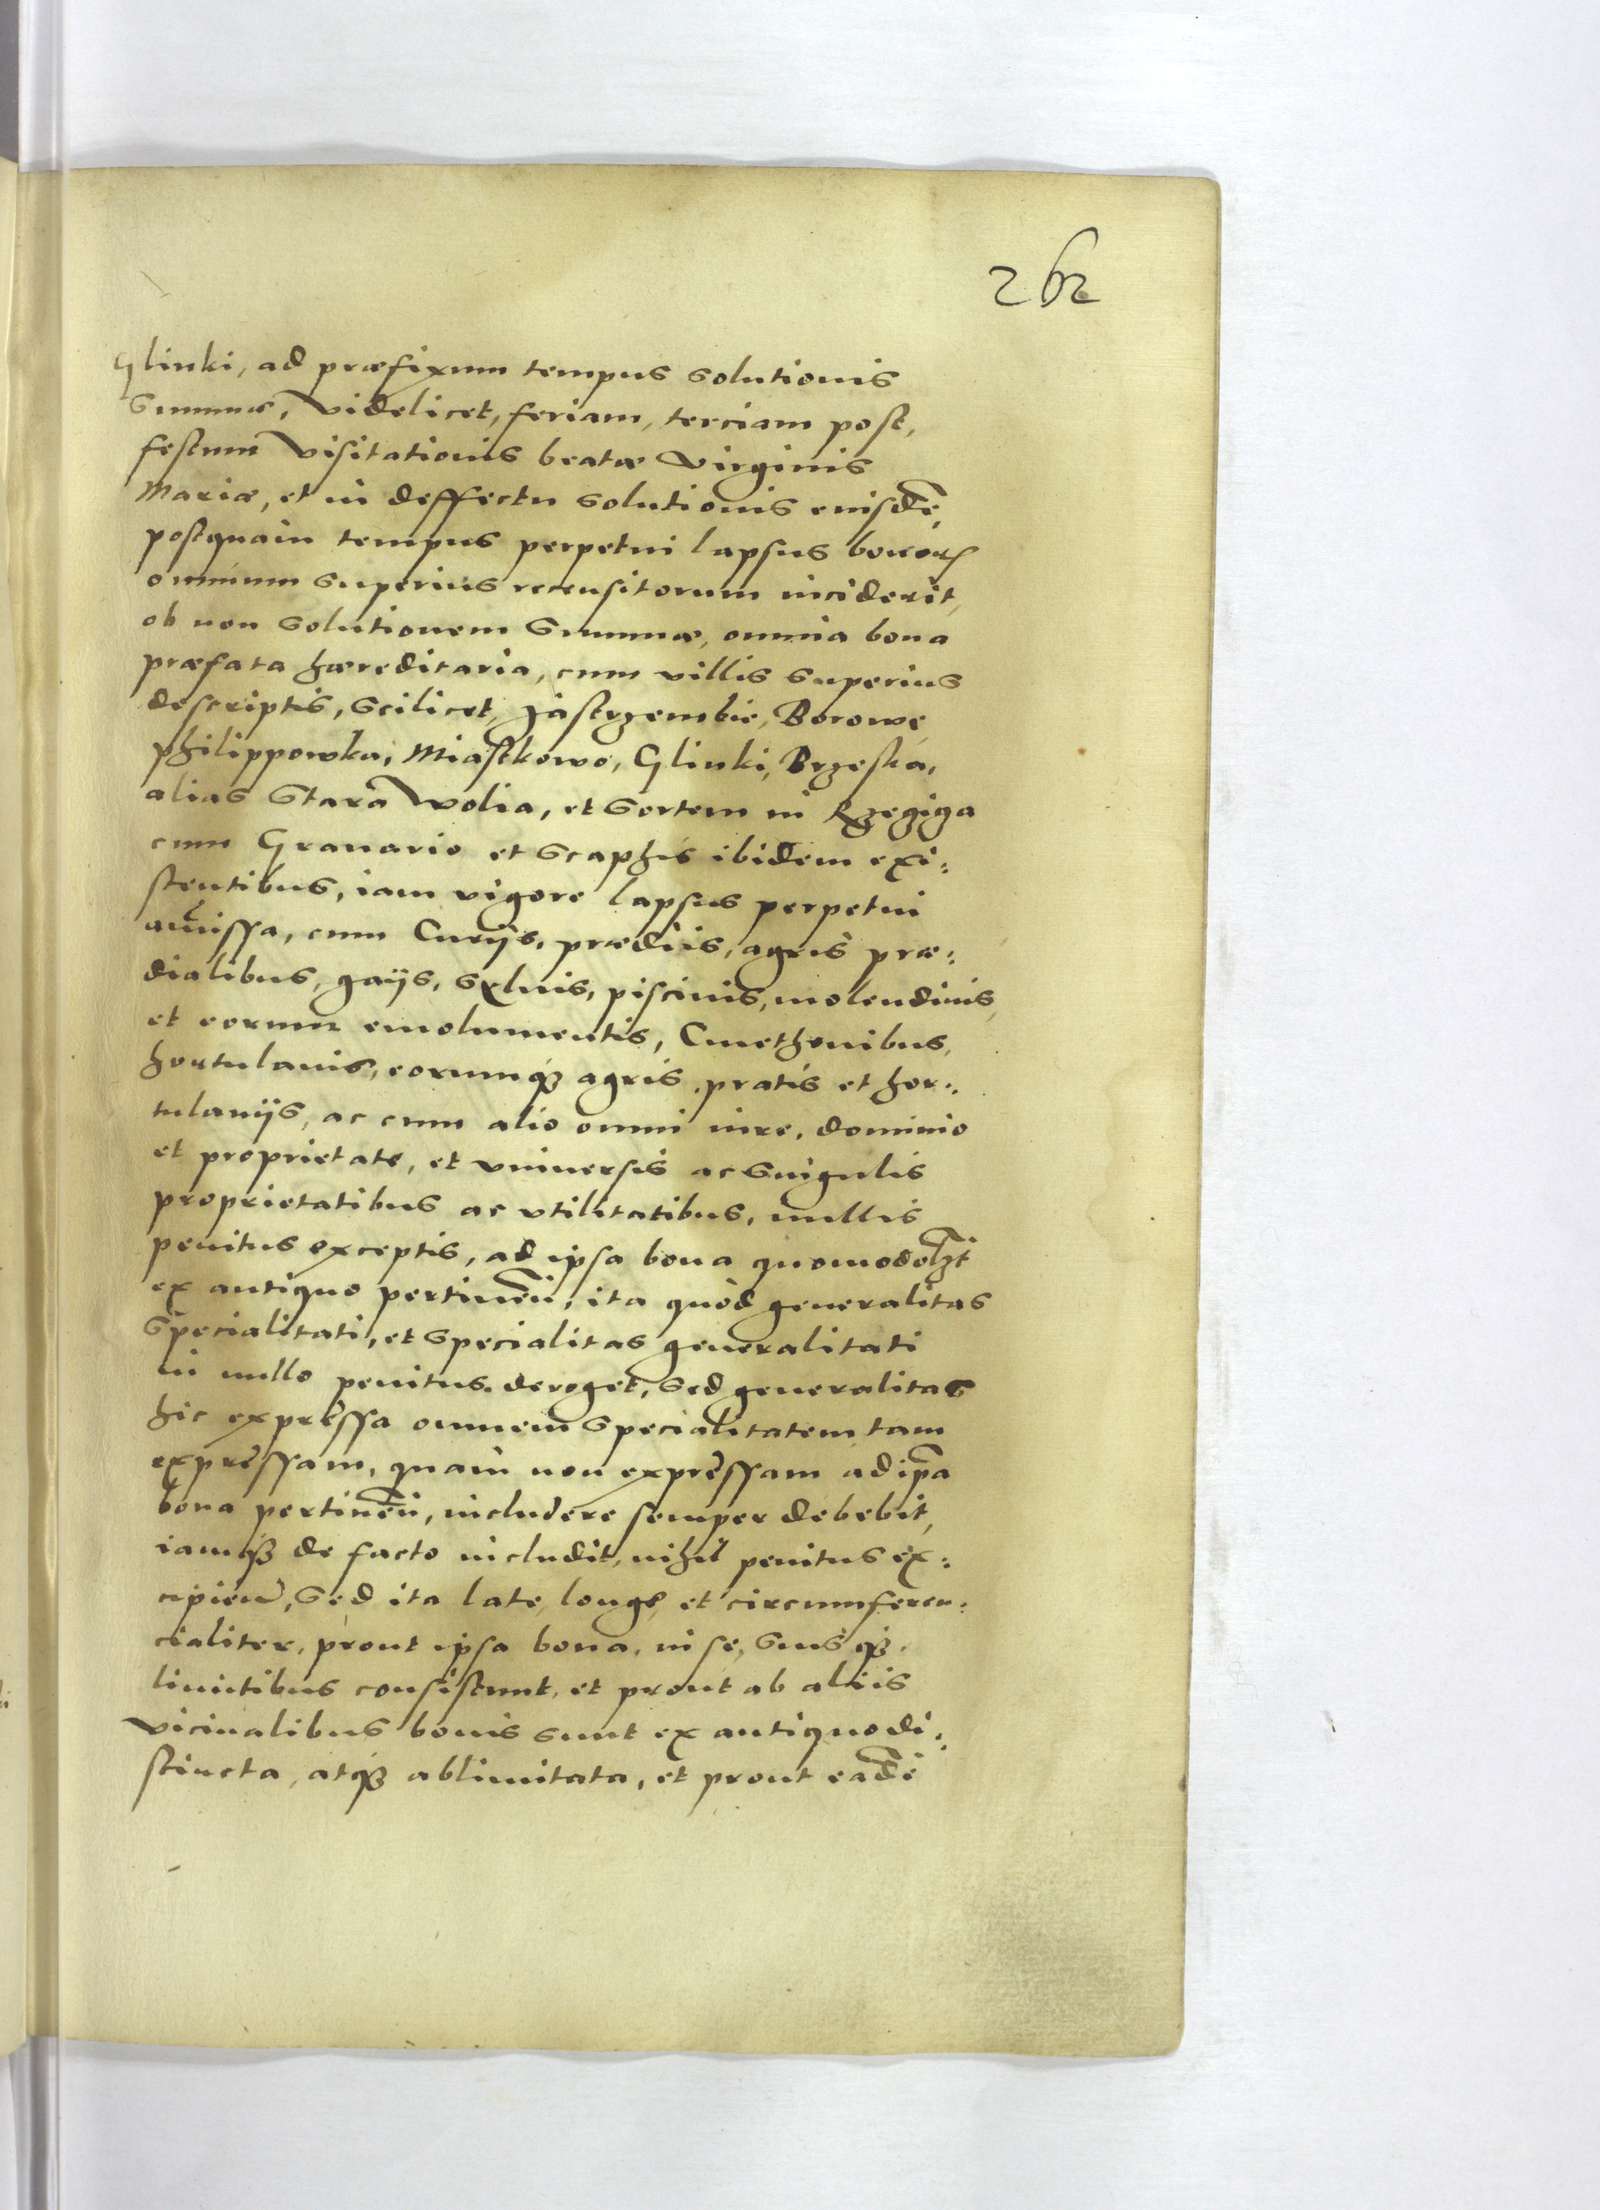 262
Glinki, ad præfixum tempus solutionis
Summæ, videlicet, feriam, terciam post,
festum Visitationis beatæ Virginis
Mariæ, et in deffectu solutionis eiusdē,
postquàm tempus perpetui lapsus bonorꝝ
omnium superius recensitorum inciderit,
ob non solutionem Summæ, omnia bona
præfata hæreditaria, cum villis superius
descriptis, scilicet, Jastrzembie, Borowe,
Philippowka, Miastkowo, Glinki, Brzeska,
alias Stara Wolia, et Sortem in
cum Granario et Scaphis ibidem exi:
stentibus, iam vigore lapsus perpetui
amissa, cum Curijs, prædiis, agris præ:
dialibus, gaijs, Syluis, piscinis, molendinis,
et eorum emolumentis, Cmethonibus,
hortulanis, eorumqꝫ agris, pratis et hor:
tulanijs, ac cum alio omni iure, dominio
et proprietate, et vniuersis ac singulis
proprietatibus ac vtilitatibus, nullis
penitus exceptis, ad ipsa bona quomodolꝫt
ex antiquo pertineñ, ita quòd generalitas
Specialitati, et Specialitas generalitati
in nullo penitus deroget, Sed generalitas
hic expressa omnem Specialitatem tam
expressam, quàm non expressam ad ip̄a
bona pertineñ, includere semper debebit,
iamqꝫ de facto includit, nihil penitus ex:
cipień, Sed ita late, longe, et circumferen:
cialiter, prout ipsa bona, in se, suisqꝫ
limitibus consistunt, et prout ab aliis
vicinalibus bonis sunt ex antiquo di:
stincta, atqꝫ ablimitata, et prout eadē